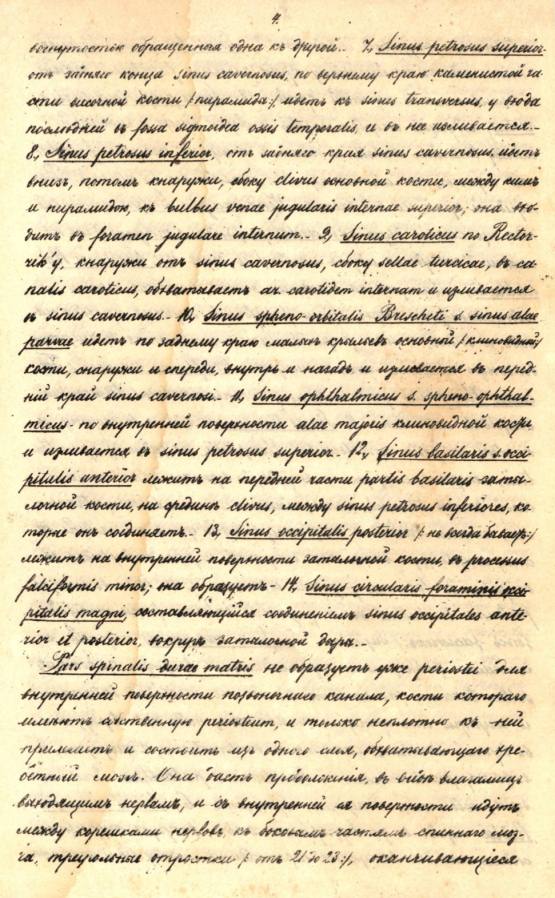 4.
вогнутостью обращенныя одна къ другой.. 7, Sinus petrosus superior
отъ задняго конца sinus cavernosus, по верхнему краю каменистой ча
сти височной кости /:пирамида:/ идетъ къ sinus transversus, у входа
послѣдней въ fossa sigmoidea ossis temporalis, и въ нее изливается..
8, Sinus petrosus inferior, отъ задняго края sinus cavernosus, идетъ
внизъ, потомъ кнаружи, сбоку clivus основной кости, между нимъ
и пирамидою, къ bulbus venae jugularis internae superior; она вхо-
дитъ въ foramen jugulare internum.. 9, Sinus caroticus по Rector-
zik'y, кнаружи отъ sinus cavernosus, сбоку sellae turcicae, въ ca-
nalis caroticus, обхватываетъ ar. carotidem internam и изливается
в sinus cavernosus.- 10, Sinus spheno-orbitalis Brescheti s. sinus alae
parvae идетъ по заднему краю малыхъ крыльевъ основной /:клиновидной:/
кости, снаружи и спереди, внутрь и назадъ и изливается въ перед-
ній край sinus cavernosi.- 11, Sinus ophthalmicus s. spheno-ophthal-
micus- по внутренней поверхности alae majoris клиновидной кости
и изливается въ sinus petrosus superior.- 12, Sinus basilaris s. occi
pitalis anterior лежитъ на передней части partis basilaris заты-
лочной кости, на срединѣ clivus, между sinus petrosus inferiores, ко-
торые онъ соединяетъ.- 13, Sinus occipitalis posterior /:не всегда бываетъ:/
лежитъ на внутренней поверхности затылочной кости, въ processus
falciformis minor; она образуетъ- 14, Sinus circularis foraminis occi
pitalis magni, составляющійся соединеніемъ sinus occipitales ante-
rior et posterior, вокругъ затылочной дыры..
Pars spinalis durae matris не образуетъ уже periostii для
внутренней поверхности позвоночнаго канала, кости котораго
имѣютъ собственную periostium, и только неплотно къ ней
прилегаетъ и состоитъ изъ одного слоя, обхватывающаго хре-
бетный мозгъ. Она даетъ продолженія, въ видѣ влагалищъ
выходящимъ нервамъ, и съ внутренней ея поверхности идутъ
между корешками нервовъ, къ боковымъ частямъ спиннаго моз-
га, треугольные отростки /:отъ 21 до 23:/, оканчивающіеся